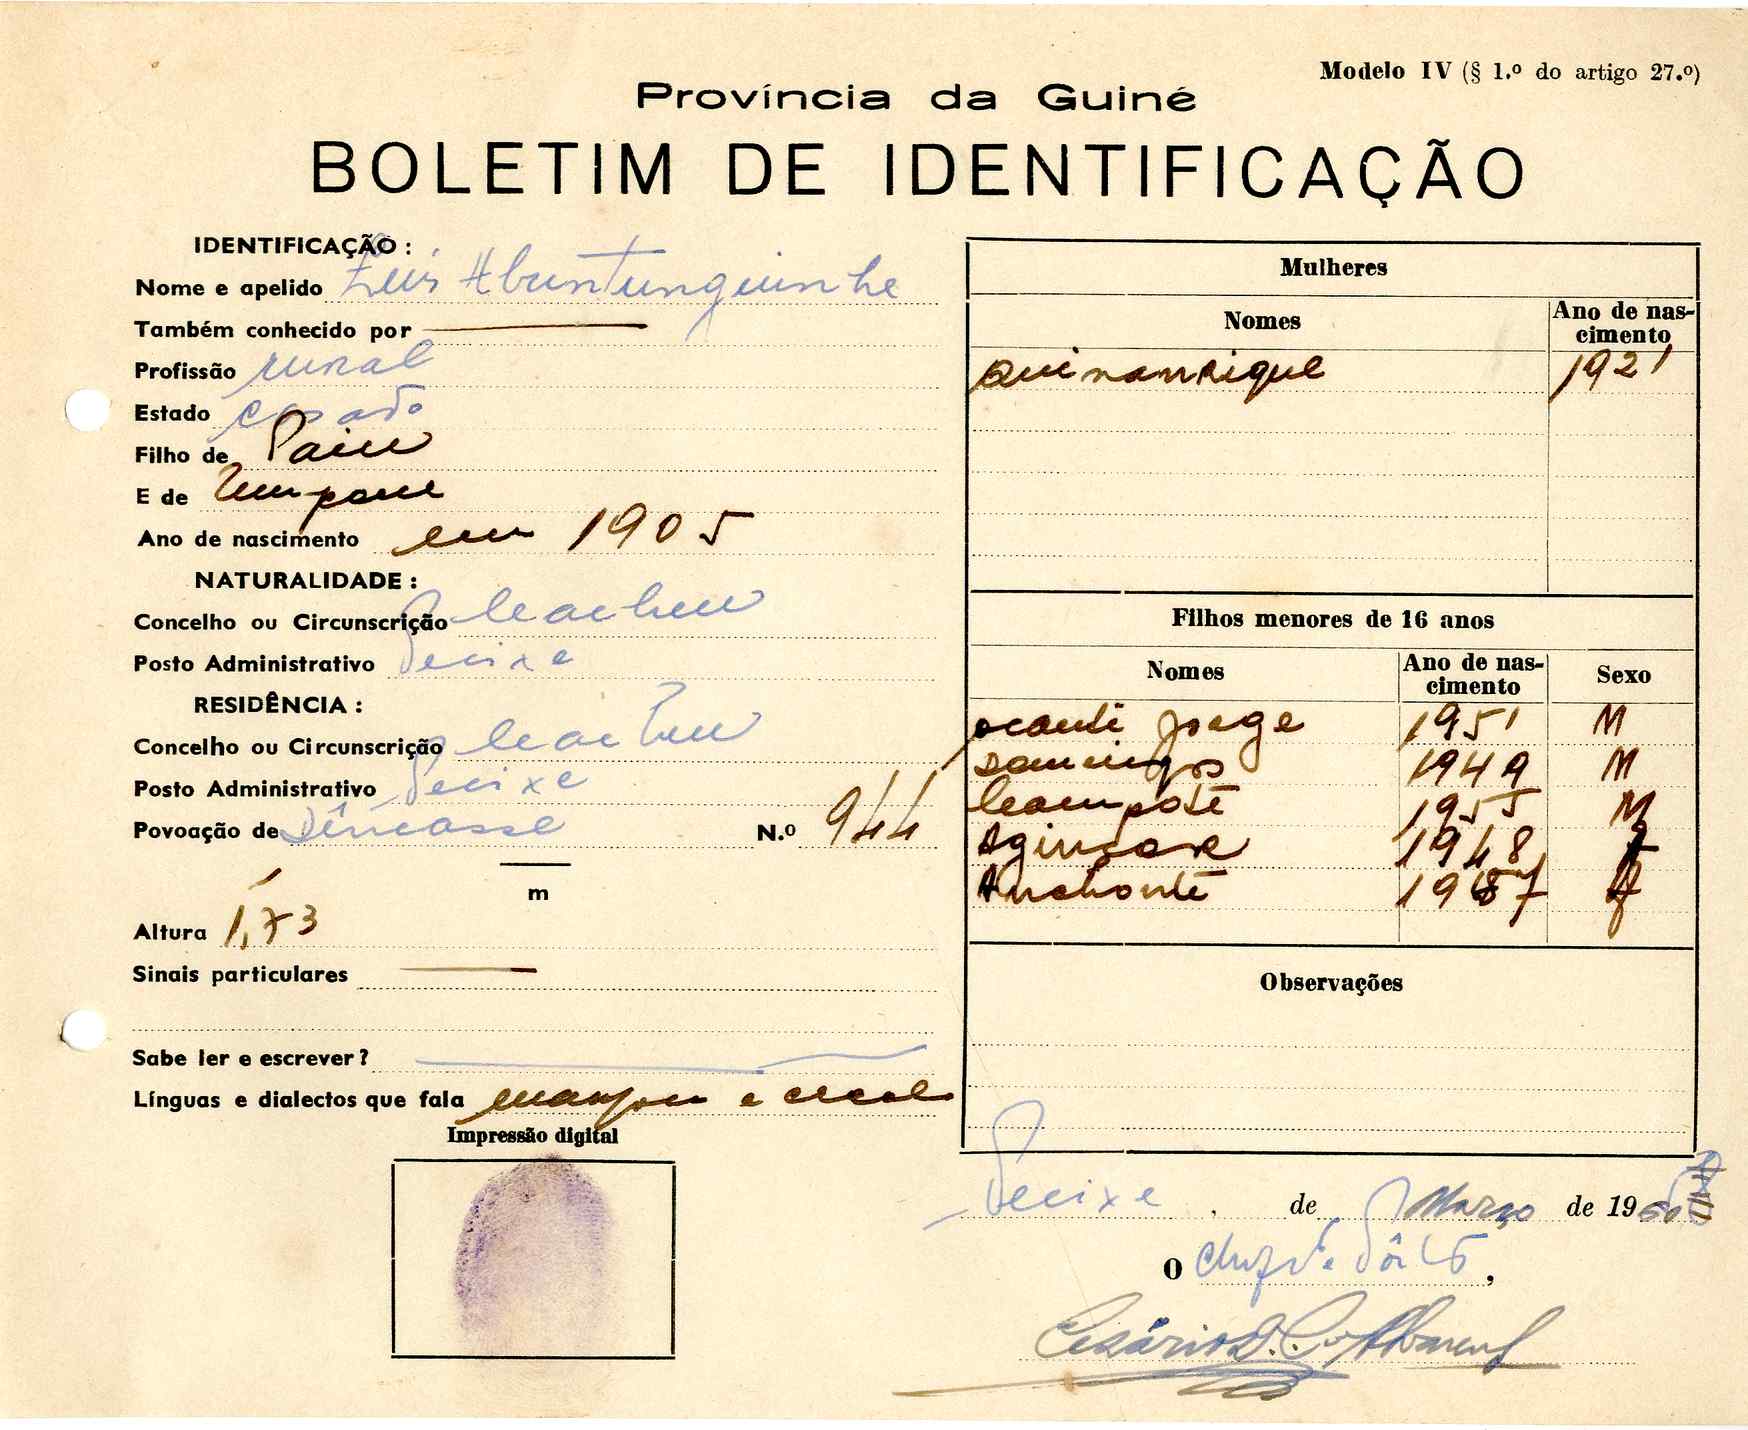 Modelo IV (§ 1.º do artigo 27.º)
Província da Guiné
BOLETIM DE IDENTIFICAÇÃO
IDENTIFICAÇÃO :
Nome e apelido Luis
Também conhecido por
Profissão rural
Estado casado
Filho de
E de
Ano de nascimento em 1905
NATURALIDADE :
Concelho ou Circunscrição Cacheu
Posto Administrativo Pecixe
RESIDÊNCIA :
Concelho ou Circunscrição Cacheu
Posto Administrativo Pecixe
Povoação de N.º 944
m
Altura 1,73
Sinais particulares
Sabe ler e escrever?
Línguas e dialectos que fala
Impressão digital
Mulheres
Nomes Ano de nascimento
Quinanrique 1921
Filhos menores de 16 anos
Nomes Ano de nascimento Sexo
Jorge 1951 M
Domingos 1949 M
Campoté 1955 M
1948 f
1957 f
Observações
Pecixe, de Março de 19
O Chefe de Pôsto,